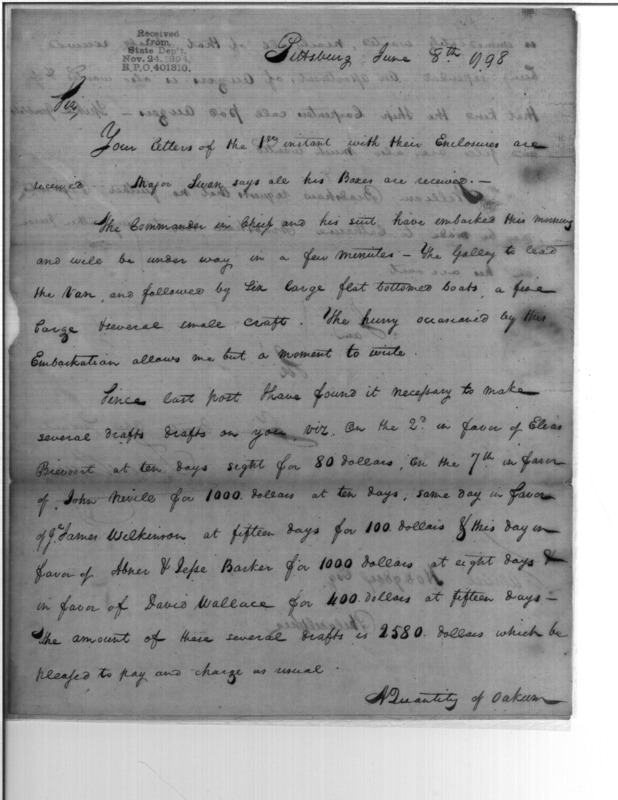 Received
from
State Dep't.
Nov. 24, 1894
R.P.O, 401810.
Pittsburg June 8th 1798
Sir,
Your letters of the 1st instant with their Enclosures are
received Major Swan says all his Boxes are received. –
The Commander in Cheif and his suit have embarked this morning
and will be under way in a few minutes – The Galley to lead
the Van, and followed by Six large flat bottomed boats, a fine
barge & several small craft. The hurry occasioned by this
Embarkation allows me but a moment to write.
Since last post I have found it necessary to make
several drafts drafts on you, viz. On the 2d in favor of Elias
Brevoort at ten days sight for 80 dollars, On the 7th in favor
of John Nevile for 1000 dollars at ten days, same day in favor
of Gl James Wilkinson at fifteen days for 100 dollars & this day in
favor of Abner & Jesse Barker for 1000 dollars at eight days &
in favor of David Wallace for 400 dollars at fifteen days –
The amount of these several drafts is 2580 dollars which be
pleased to pay and charge as usual.
A Quantity of Oakum